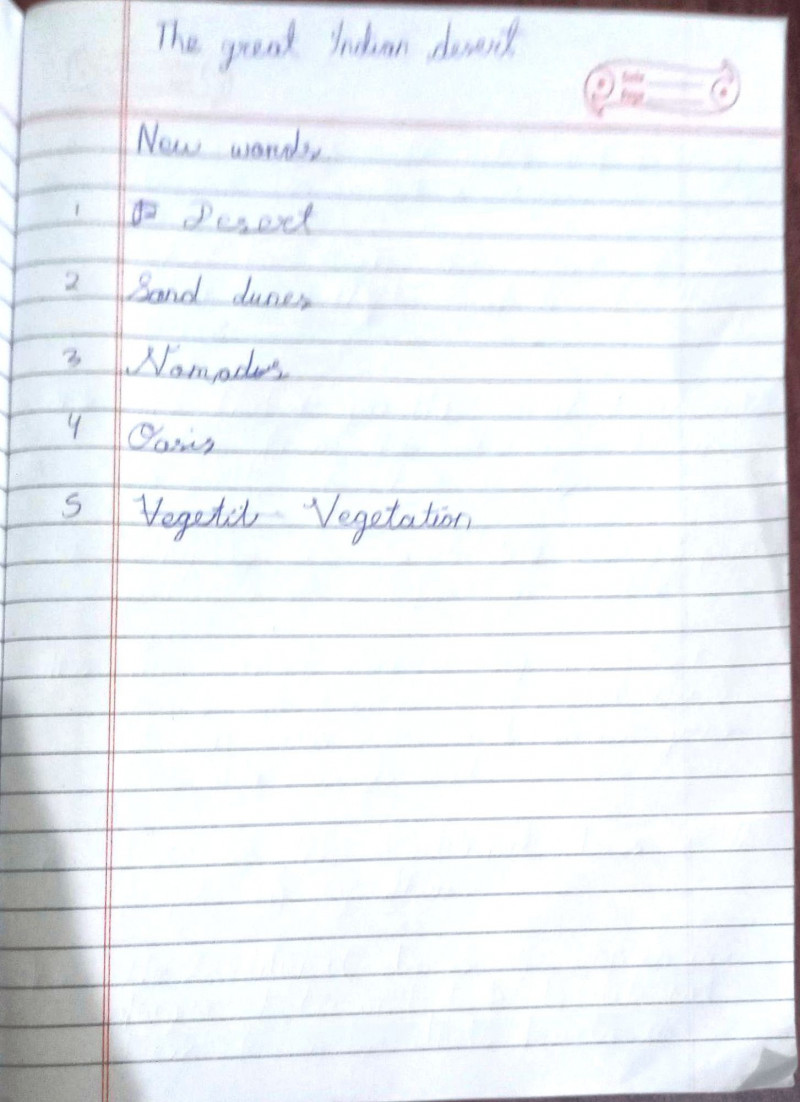 The great Indian desert
Date
Page
New words
1 Desert
2 Sand dunes
3 Nomads
4 Oasis
5 Vegetit Vegetation